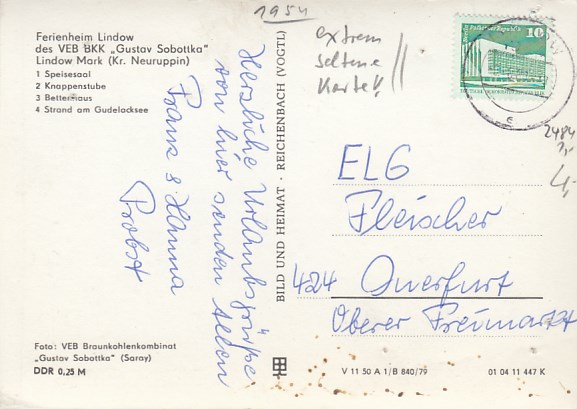 1954
Ferienheim Lindow
des VEB BKK „Gustav Sobottka"
Lindow Mark (Kr. Neuruppin)
1 Speisesaal
2 Knappenstube
3 Bettenhaus
4 Strand am Gudelacksee
Herzliche Urlaubsgrüße
von hier senden Allen
Franz & Hanna
Probst
Foto: VEB Braunkohlenkombinat
„Gustav Sobottka" (Saray)
DDR 0,25 M
BILD UND HEIMAT · REICHENBACH (VOGTL)
extrem
seltene
Karte!!
10
2484
4,-
ELG
Fleischer
424 Querfurt
Oberer Freimarkt
V 11 50 A 1/B 840/79
01 04 11 447 K